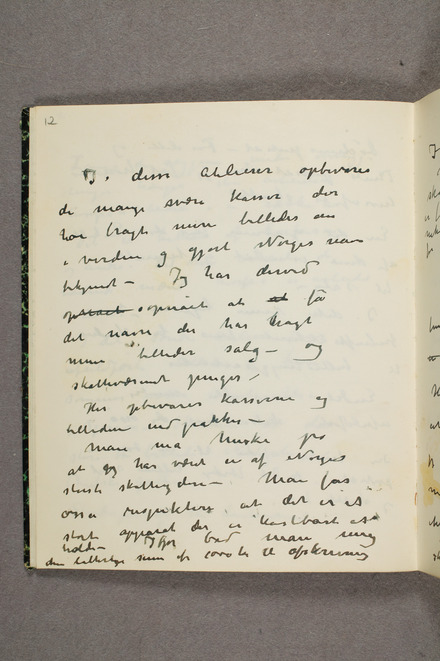 12
I disse Atelierer opbevares
de mange svære kasser der
har bragt mine billeder om
i verden og gjort Norges navn
bekjendt – Jeg har derved
opnået at få
det navn der har bragt
mine billeder salg – og
skattevæsenet penger –
Her opbevares kasserne og
billederne indpakkes –
Man må huske på
at jeg har været en af Norges
største skatteydere – Man får
osså respektere at det er et
stort apparat der er kostbart at
holde – Jeg bad man
den sum af til afskrivning